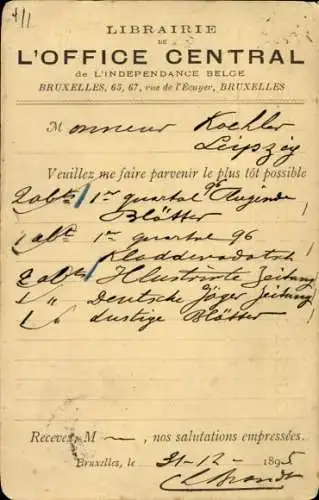 4/1
LIBRAIRIE
DE
L'OFFICE CENTRAL
de L'INDEPENDANCE BELGE
BRUXELLES, 63, 67, rue de l'Ecuyer, BRUXELLES
Monsieur Koehler
Leipzig
Veuillez me faire parvenir le plus tôt possible
2 abts 1er quartal 96 Fliegende
Blätter
1 abt 1er quartal 96
Kladderadatsch
2 abts Illustrirte Zeitung
1 " Deutsche Jäger Zeitung
1 " Lustige Blätter
Recevez, M , nos salutations empressées.
Bruxelles, le 31-12- 1895